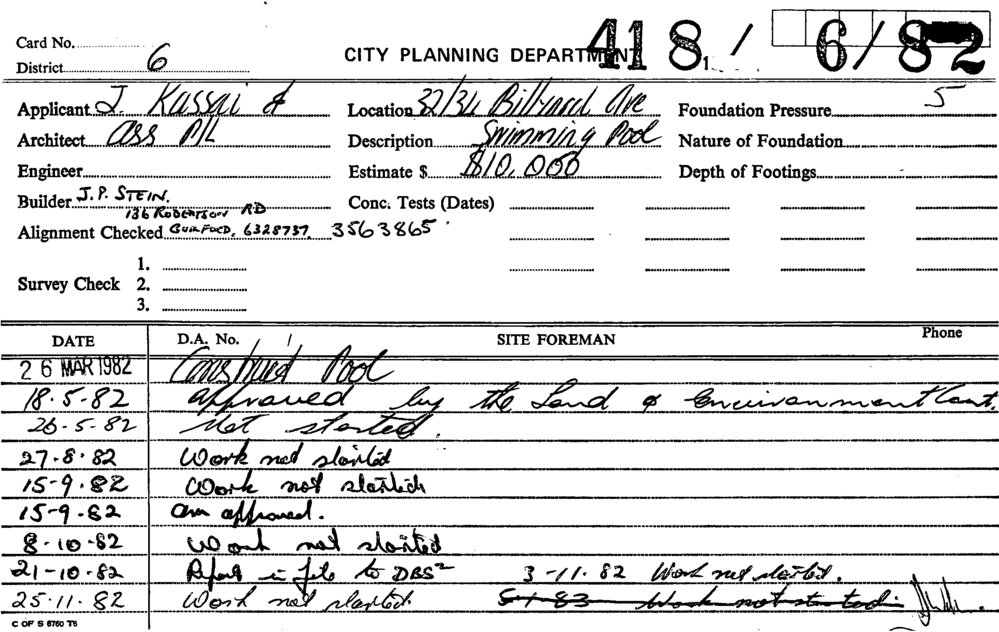 Card No.
District 6 CITY PLANNING DEPARTMENT 418 / 6/82
Applicant J. Kassai & Location 32/34 Billyard Ave Foundation Pressure 5
Architect Ass P/L Description Swimming Pool Nature of Foundation
Engineer Estimate $ $10,000 Depth of Footings
Builder J.P. STEIN. Conc. Tests (Dates)
136 ROBERTSON RD
Alignment Checked GUILFORD, 6328737, 3563865
1.
Survey Check 2.
3.
DATE D.A. No. SITE FOREMAN Phone
26 MAR 1982 Construct Pool
18.5.82 approved by the Land & Environment Court.
26.5.82 Not started.
27.8.82 Work not started
15-9.82 Work not started
15-9.82 approved.
8-10-82 Work not started
21-10-82 Report in file to DBS 3-11.82 Work not started.
25.11.82 Work not started 5-1-83 Work not started
C OF S 6760 T6